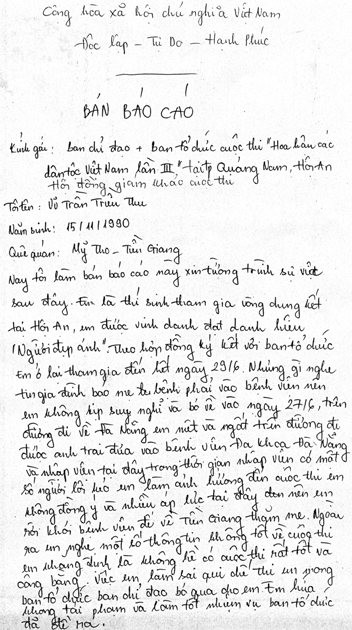 Cộng hòa xã hội chủ nghĩa Việt Nam
Độc lập - Tự Do - Hạnh Phúc
BẢN BÁO CÁO
Kính gửi: ban chỉ đạo + Ban tổ chức cuộc thi "Hoa hậu các
dân tộc Việt Nam lần III" tại tp Quảng Nam, Hội An
Hội đồng giám khảo cuộc thi
Tôi tên: Võ Trần Triều Thu
Năm sinh: 15/11/1990
Quê quán: Mỹ Tho - Tiền Giang
Nay tôi làm bản báo cáo này xin tường trình sự việc
sau đây. Em là thí sinh tham gia vòng chung kết
tại Hội An, em được vinh danh đạt danh hiệu
"Người đẹp ảnh". Theo hợp đồng ký kết với ban tổ chức
Em ở lại tham gia đến hết ngày 29/6. Nhưng vì nghe
tin gia đình báo mẹ bị bệnh phải vào bệnh viện nên
em không kịp suy nghĩ và bỏ về vào ngày 27/6, trên
đường đi về Đà Nẵng em mệt và ngất trên đường đi
được anh trai đưa vào bệnh viện Đa Khoa Đà Nẵng
và nhập viện tại đây trong thời gian nhập viện có một
số người lôi kéo em làm ảnh hưởng đến cuộc thi em
không đồng ý và nhiều áp lực tại đây đến nên em
rời khỏi bệnh viện để về Tiền Giang thăm mẹ. Ngoài
ra em nghe một số thông tin không tốt về cuộc thi
em khẳng định là không hề có cuộc thi rất tốt và
công bằng. Việc em làm sai qui chế thi em mong
ban tổ chức ban chỉ đạo bỏ qua cho em. Em hứa
không tái phạm và làm tốt nhiệm vụ ban tổ chức
đã đề ra.